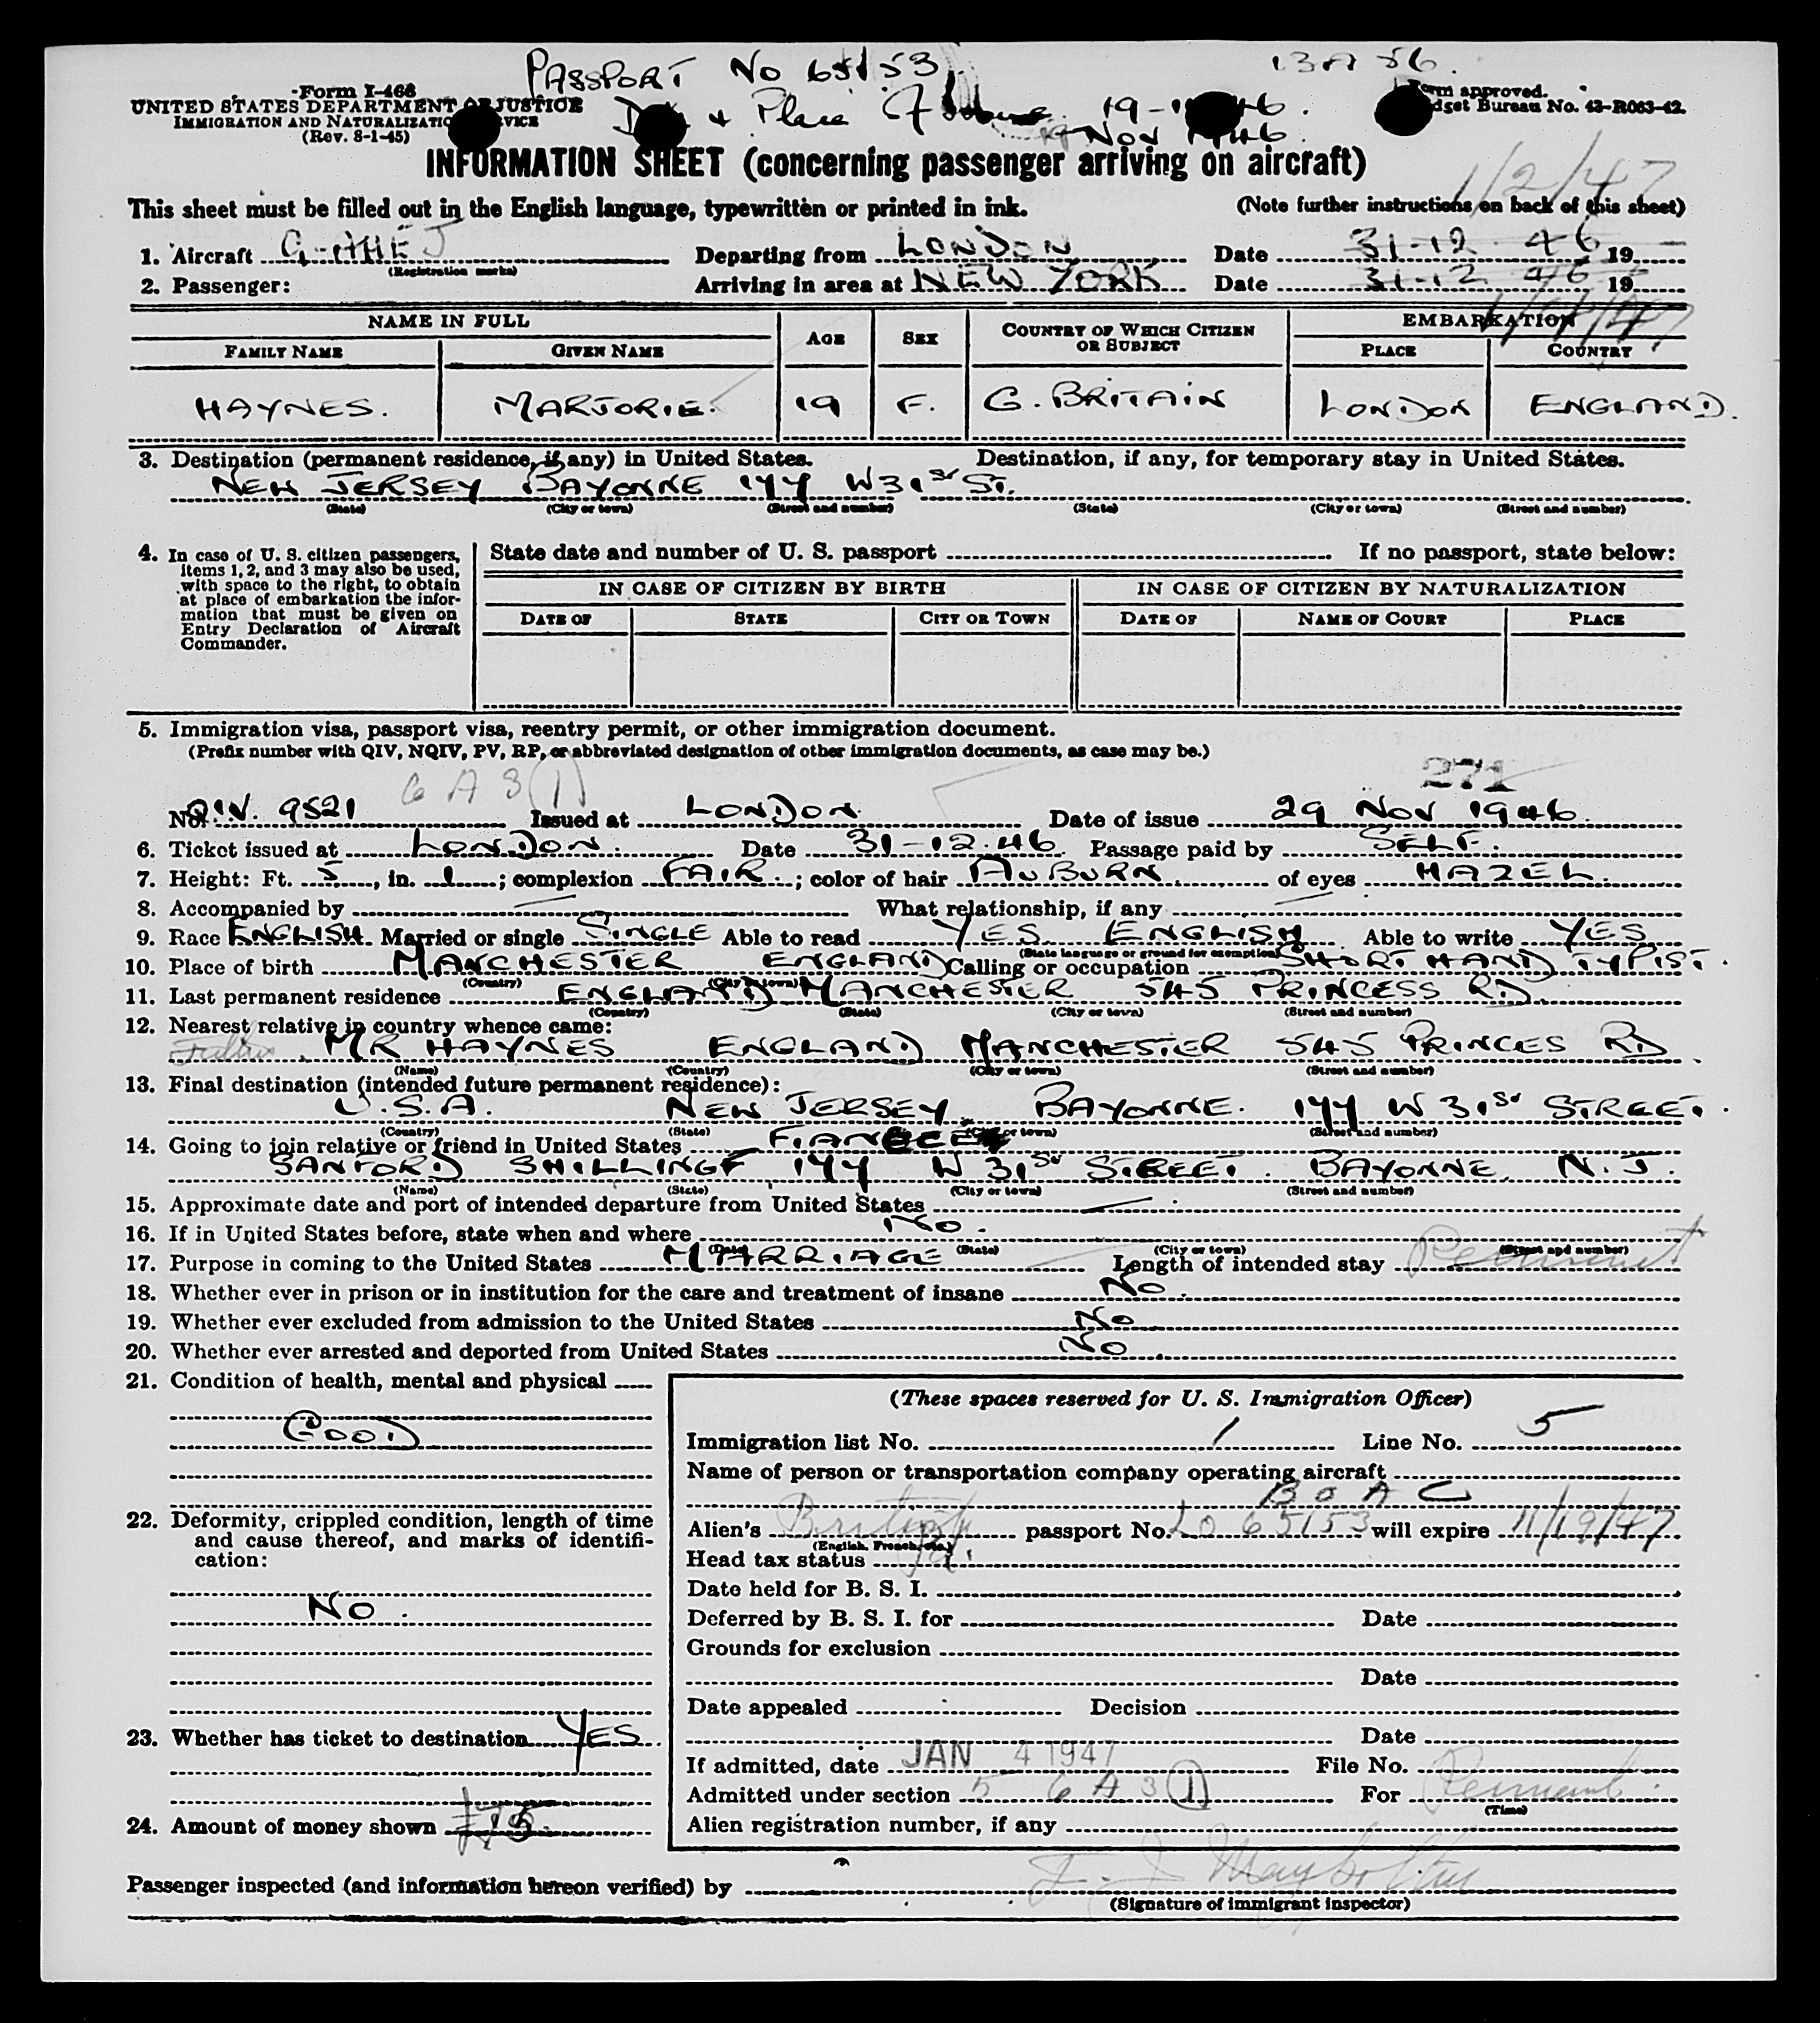 PASSPORT No 65153. 13 A 56.
Form I-466
UNITED STATES DEPARTMENT OF JUSTICE
IMMIGRATION AND NATURALIZATION SERVICE
(Rev. 8-1-45)
& Place of Issue 19-11-46.
Nov 1946.
Form approved.
Budget Bureau No. 43-R063-42.
INFORMATION SHEET (concerning passenger arriving on aircraft)
1/2/47
This sheet must be filled out in the English language, typewritten or printed in ink. (Note further instructions on back of this sheet)
1. Aircraft G-AHEJ Departing from LONDON Date 31-12 46 19
(Registration marks)
2. Passenger: Arriving in area at NEW YORK Date 31-12 46 19
NAME IN FULL AGE SEX COUNTRY OF WHICH CITIZEN OR SUBJECT EMBARKATION
FAMILY NAME GIVEN NAME PLACE COUNTRY
HAYNES. MARJORIE. 19 F. G. BRITAIN LONDON ENGLAND.
3. Destination (permanent residence, if any) in United States. Destination, if any, for temporary stay in United States.
NEW JERSEY BAYONNE 144 W 31st ST.
(State) (City or town) (Street and number) (State) (City or town) (Street and number)
4. In case of U. S. citizen passengers, items 1, 2, and 3 may also be used, with space to the right, to obtain at place of embarkation the information that must be given on Entry Declaration of Aircraft Commander.
State date and number of U. S. passport If no passport, state below:
IN CASE OF CITIZEN BY BIRTH IN CASE OF CITIZEN BY NATURALIZATION
DATE OF STATE CITY OR TOWN DATE OF NAME OF COURT PLACE
5. Immigration visa, passport visa, reentry permit, or other immigration document.
(Prefix number with QIV, NQIV, PV, RP, or abbreviated designation of other immigration documents, as case may be.)
6 A 3 (1) 271
No. QIV. 9521 Issued at LONDON Date of issue 29 Nov 1946.
6. Ticket issued at LONDON. Date 31-12.46 Passage paid by SELF.
7. Height: Ft. 5, in. 1; complexion FAIR.; color of hair AUBURN of eyes HAZEL.
8. Accompanied by — What relationship, if any —
9. Race ENGLISH Married or single SINGLE Able to read YES ENGLISH Able to write YES
(State language or ground for exemption)
10. Place of birth MANCHESTER ENGLAND Calling or occupation SHORT HAND TYPIST.
(Country) (City or town)
11. Last permanent residence ENGLAND MANCHESTER 545 PRINCESS RD.
(Country) (State) (City or town) (Street and number)
12. Nearest relative in country whence came:
Father. MR HAYNES ENGLAND MANCHESTER 545 PRINCES RD.
(Name) (Country) (City or town) (Street and number)
13. Final destination (intended future permanent residence):
U.S.A. NEW JERSEY BAYONNE. 144 W 31st STREET.
(Country) (State) (City or town) (Street and number)
14. Going to join relative or friend in United States FIANCEE
SANFORD SHILLING 144 W 31st STREET. BAYONNE, N.J.
(Name) (State) (City or town) (Street and number)
15. Approximate date and port of intended departure from United States —
16. If in United States before, state when and where NO.
(Date) (State) (City or town) (Street and number)
17. Purpose in coming to the United States MARRIAGE Length of intended stay Permanent
18. Whether ever in prison or in institution for the care and treatment of insane NO.
19. Whether ever excluded from admission to the United States NO
20. Whether ever arrested and deported from United States NO
21. Condition of health, mental and physical
GOOD
22. Deformity, crippled condition, length of time and cause thereof, and marks of identification:
NO.
23. Whether has ticket to destination YES.
24. Amount of money shown 75.
(These spaces reserved for U. S. Immigration Officer)
Immigration list No. 1 Line No. 5
Name of person or transportation company operating aircraft
B O A C
Alien's British passport No. Lo 65153 will expire 11/19/47
(English, French, etc.)
Head tax status
Date held for B. S. I.
Deferred by B. S. I. for Date
Grounds for exclusion
Date
Date appealed Decision
Date
If admitted, date JAN 4 1947 File No.
Admitted under section 5 6 A 3 (1) For Permanent.
(Time)
Alien registration number, if any
Passenger inspected (and information hereon verified) by
(Signature of immigrant inspector)